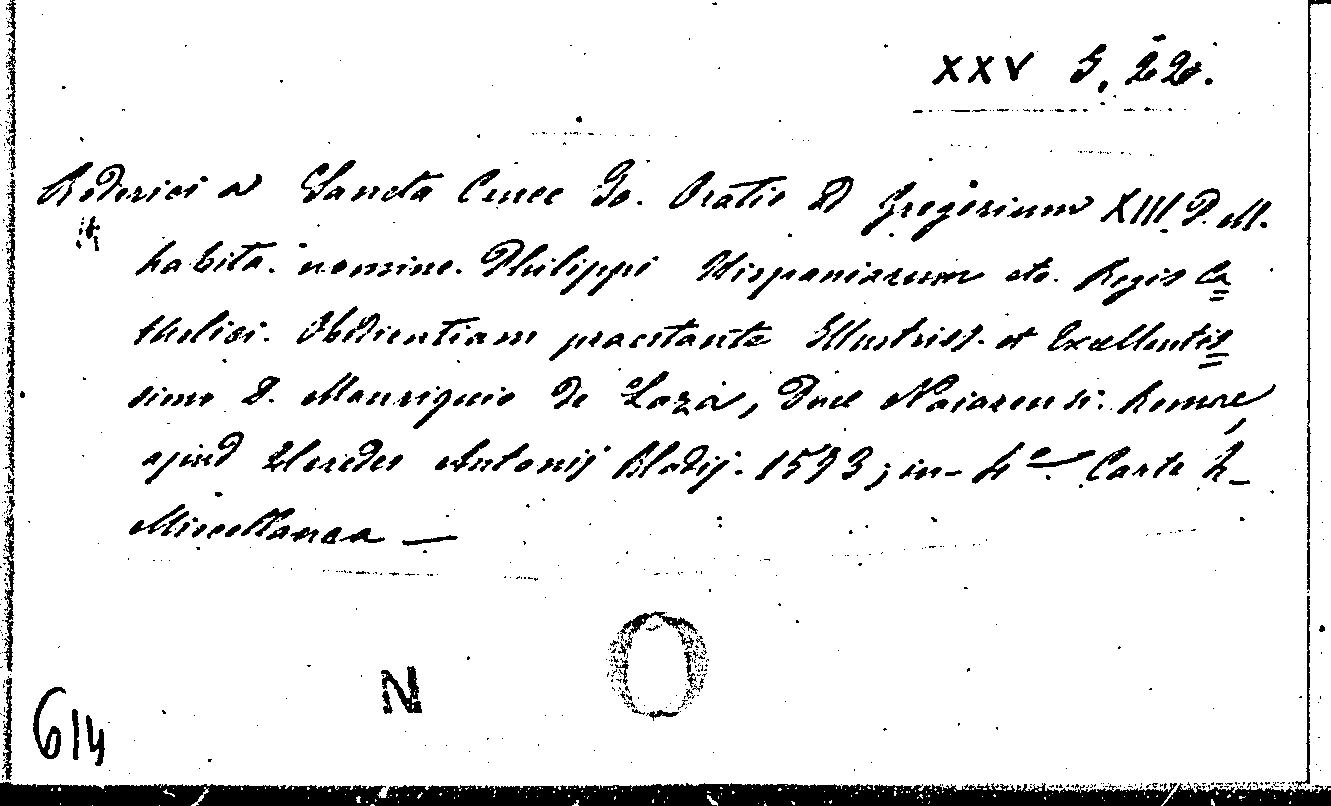 XXV G, 22.
Roderici a Sancta Cruce Io. Oratio ad Gregorium XIII P. M.
habita. nomine. Philippi Hispaniarum etc. Regis Ca=
tholici. Obedientiam praestante Illustriss. et Excellentis=
simo D. Manriquio de Lara, Duce Naiarensi. Romae,
apud Heredes Antonij Bladij. 1573; in- 4º Carte 4-
Miscellanea —
N O
614